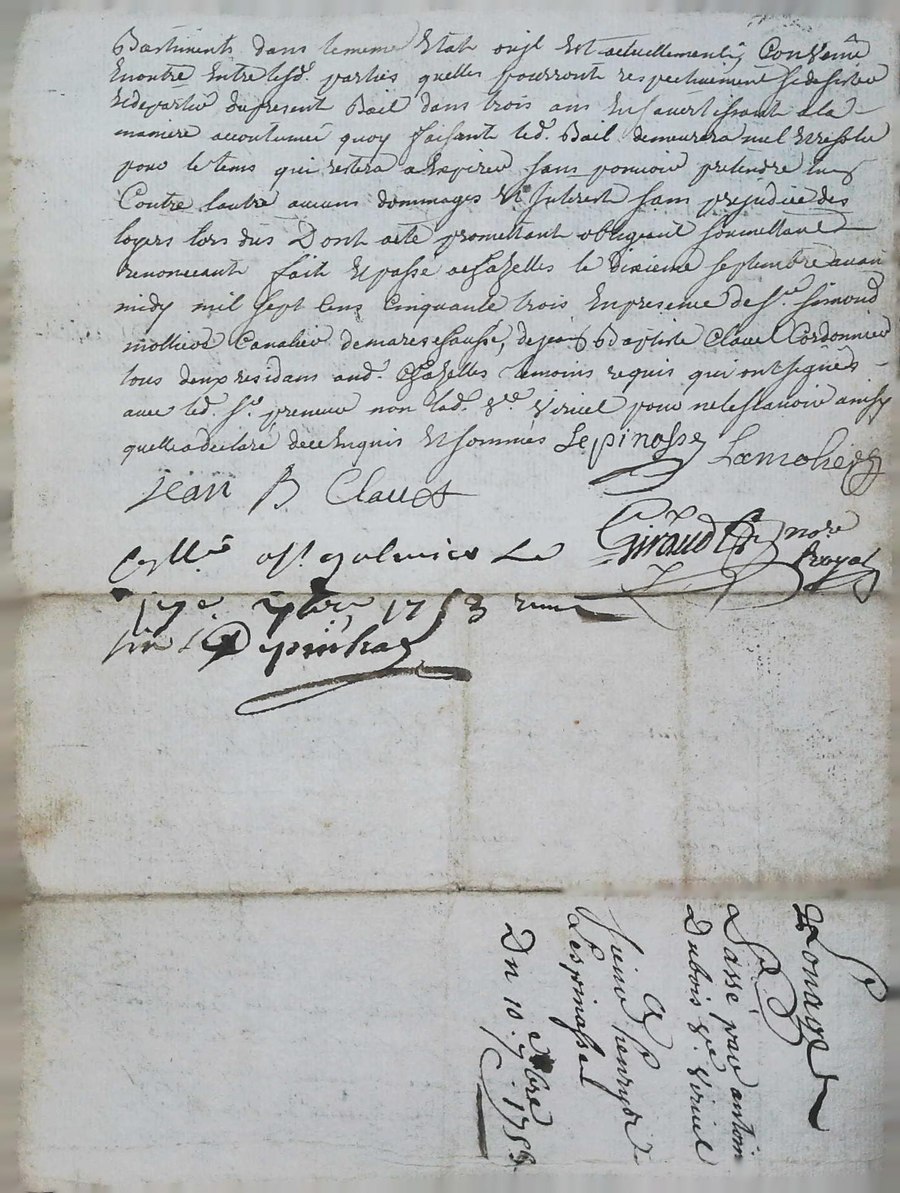 Bastiments dans le meme Etat ouil Est actuellement, Convenu
Enoutre Entre lesd. parties quelles pourront respectivement sedesister
Et departir du present Bail dans trois ans En savertissant a la
maniere accoutumée quoy faisant led. Bail demeurera nul Et resolu
pour le tems qui restera a Expirer sans pouvoir pretendre lun
Contre lautre aucuns dommages Et Interest sans prejudice des
loyers lors dus Dont acte promettant obligeant soumettant
renonceant fait Et passé a Chazelles le dixieme septembre avan
midy mil sept Cens Cinquante trois En presence de Sr. simond
mollieres Cavalier demarechaussé, de jean Baptiste Clavel Cordonnier
tous deux residans aud. Chazelles temoins requis qui ont signés
avec led. Sr. preneur non lad. ve. viricel pour ne le scavoir ainsy
quelle a declaré de ce Enquis Et sommés Lespinasse
Jean B Clavel
Giraud nore Royal
le
17e 7bre 1753
Louage
Passé par antoin
Dubois ve. viricel
henry
Lespinasse
Du 10e 7bre 1753